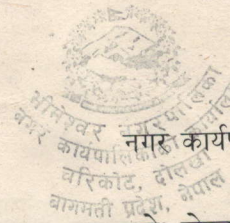 भीमेश्वर नगरपालिका
नगर कार्यपालिकाको कार्यालय
चरिकोट, दोलखा
बागमती प्रदेश, नेपाल
नगर कार्यप